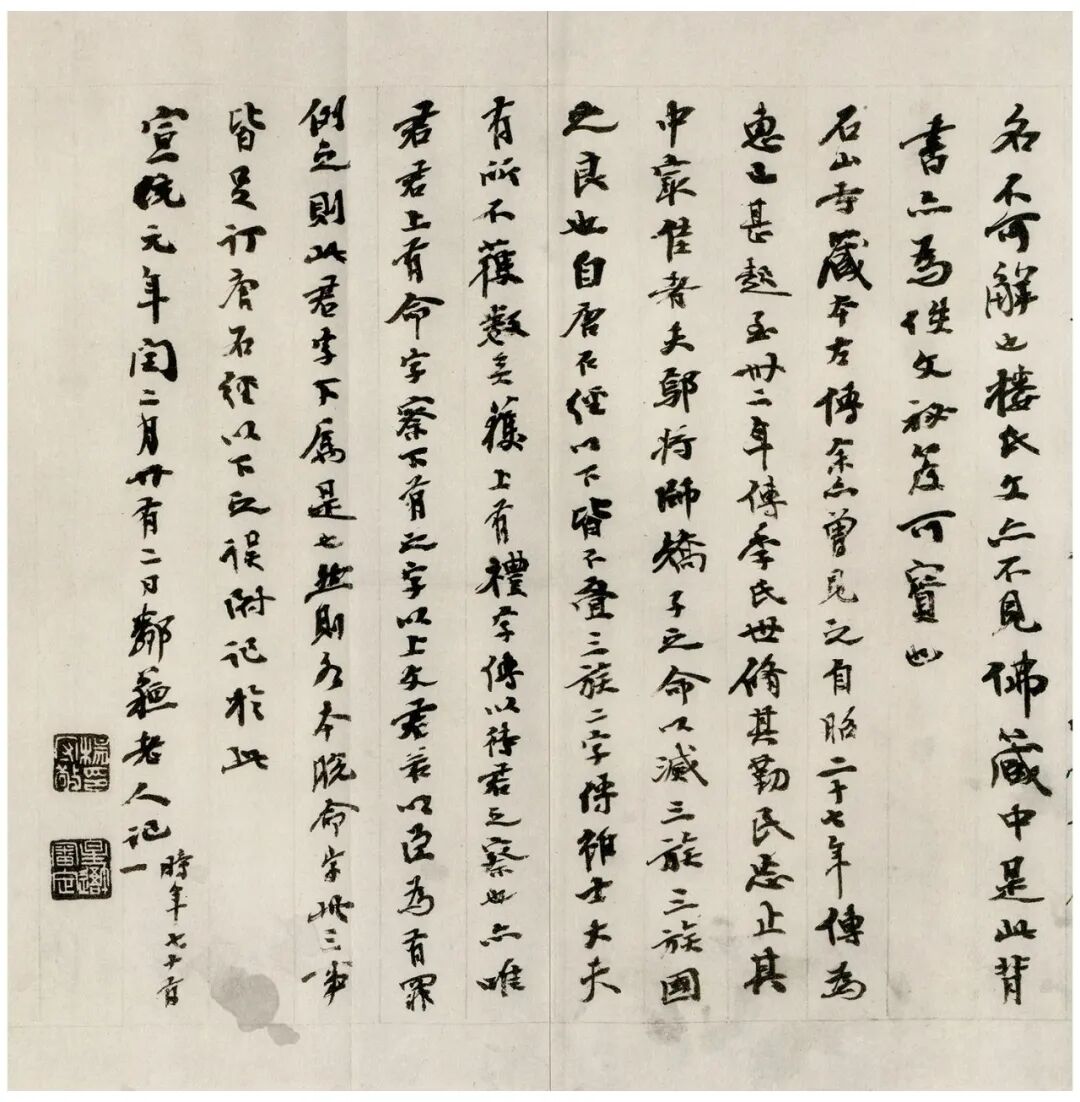 名不可解也樓氏文亦不見佛藏中是此背
書亦為佚文秘笈可寶也
石山寺藏本左傳余亦曾見之自昭二十七年傳為
惠已甚起至卅二年傳季氏世脩其勤民忘止其
中最佳者夫鄢將師矯子之命以滅三族三族國
之良也自唐石經以下皆不疊三族二字傳雖士大夫
有所不獲數矣獲上有禮字傳以待君之察也亦唯
君君上有命字察下有之字以上文君若以臣為有罪
例之則此君字下屬是也然則各本脫命字此三事
皆足訂唐石經以下之誤附記於此
宣統元年閏二月廿有二日鄰蘇老人記
時年七十有一
楊印守敬